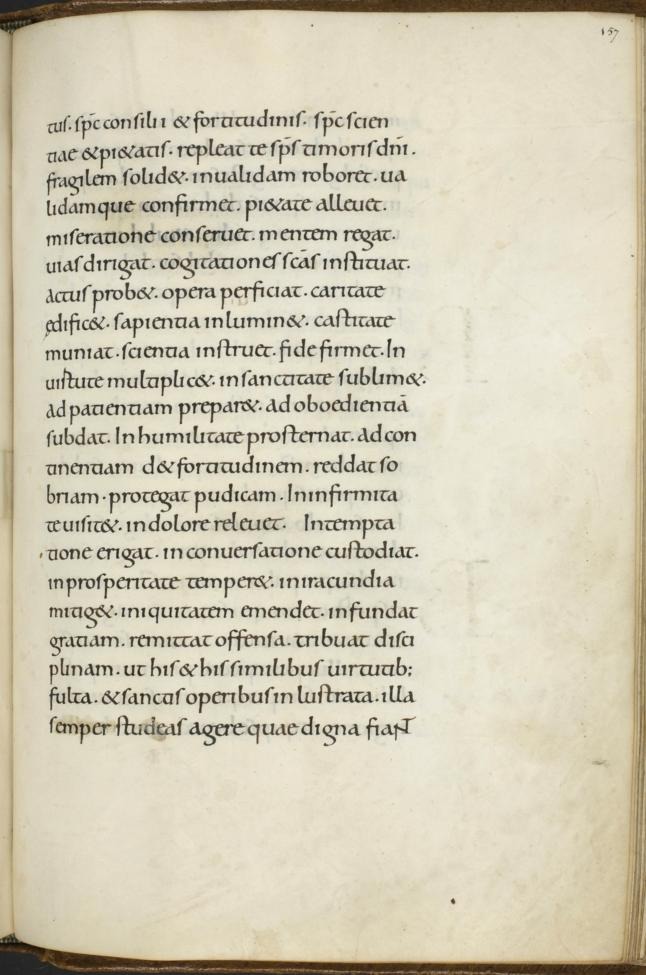 157
tus. sp̄c consilii & fortitudinis. sp̄c scien
tiae & pi&atis. repleat te sp̄s timoris dn̄i.
fragilem solid&. inualidam roboret. ua
lidamque confirmet. pi&ate alleuet.
miseratione conseruet. mentem regat.
uias dirigat. cogitationes scās instituat.
actus prob&. opera perficiat. caritate
ędific&. sapientia inlumin&. castitate
muniat. scientia instruet. fide firmet. In
uirtute multiplic&. in sanctitate sublim&.
ad patientiam prepar&. ad oboedientiā
subdat. In humilitate prosternat. ad con
tinentiam d& fortitudinem. reddat so
briam. protegat pudicam. In infirmita
te uisit&. in dolore releuet. In tempta
tione erigat. in conuersatione custodiat.
in prosperitate temper&. in iracundia
mitig&. iniquitatem emendet. infundat
gratiam. remittat offensa. tribuat disci
plinam. ut his & his similibus uirtutib;
fulta. & sanctis operibus in lustrata. illa
semper studeas agere quae digna fiaNT